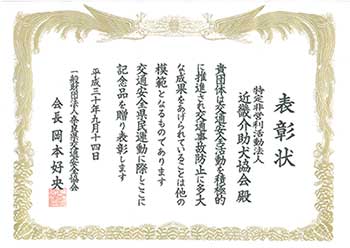 表彰状
特定非営利活動法人
近畿介助犬協会 殿
貴団体は交通安全活動を積極的
に推進され交通事故防止に多大
な成果をあげられていることは他の
模範となるものであります
交通安全県民運動に際しここに
記念品を贈り表彰します
平成三十年九月十四日
一般財団法人奈良県交通安全協会
会長 岡本好央